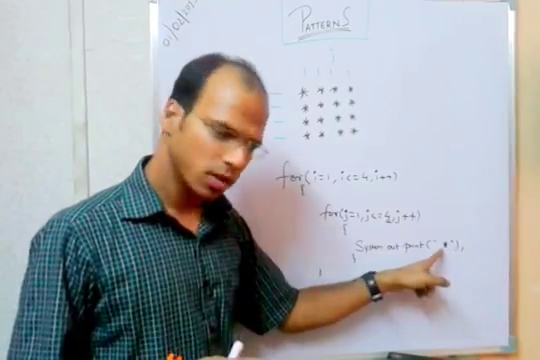 01/02/20
PATTERNS
j
* * * *
* * * *
* * * *
* * * *
for(i=1, i<=4, i++)
{
for(j=1, j<=4, j++)
{
System out print(" *"),
}
}